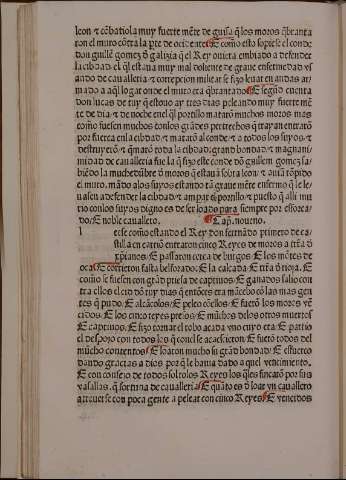 leon ⁊ cõbatiola muy fuerte mẽte de guisa q̃ los moros q̃branta
ron el muro cõtra la p̃te de ocidẽte E como esto sopiese el conde
don guillẽ gomez d̃ galizia q̃ el Rey ouiera embiado a defender
la cibdad el q̃l estaua muy mal doliente de graue enfermedad vs
ando de caualleria ⁊ correpcion militar se fizo leuar en andas ar
mado a aq̃l logar onde el muro era q̃brantado E segũd cuenta
don lucas de tuy q̃ estouo ay tres dias peleando muy fuerte mẽ
te de dia ⁊ de noche en el q̃l portillo mataro muchos moros mas
como fuesen muchos con los grãdes pertrechos q̃ trayan entrarõ
por fuerça en la cibdad ⁊ mataro al conde ⁊ a todos los suyos ⁊
destruyerõ ⁊ q̃marõ toda la cibdad grand bondad ⁊ magnani
midad de caualleria fue la q̃ fizo este conde dõ guillem gomez sa
biẽdo la muchedũbre d̃ moros q̃ estaua sobre leon ⁊ auiã rõpido
el muro mãdo a los suyos estando tã graue mẽte enfermo q̃ le le
uasen a defender la cibdad ⁊ amparar el portillo ⁊ puesto q̃ alli mu
rio con los suyos digno es de ser loado para siempre por esforça
do E noble cauallero. Cap. noueno.
l este como estando el Rey don fernãdo primero de ca
stilla en carriõ entraron cinco Reyes de moros a trr̃a d̃
xp̃ianos E passaron cerca de burgos E los mõtes de
oca E corrieron fasta belforado E la calçada E trr̃a d̃ rioja E
como se fuesen con grãd priesa de captiuos E ganados salio con
tra ellos el cid dõ ruy dias q̃ entõces era mãcebo cõ las mas gen
tes q̃ pudo E alcãçolos E peleo cõ ellos E fuerõ los moros vẽ
cidos E los cinco reyes presos E muchos de los otros muertos
E captiuos E fizo tornar el robo a cada vno cuyo era E partio
el despojo con todos los q̃ con el se acaescieron E fuerõ todos del
mucho contentos E loaron mucho su grãd bondad E esfuerço
dando gracias a dios por q̃ le hauia dado a quel vencimiento.
E con consejo de todos solto los Reyes los q̃les fincarõ por sus
vasallas q̃ fortuna de caualleria E quãto es d̃ loar vn cauallero
atreuerse con poca gente a pelear con cinco Reyes E vencidos